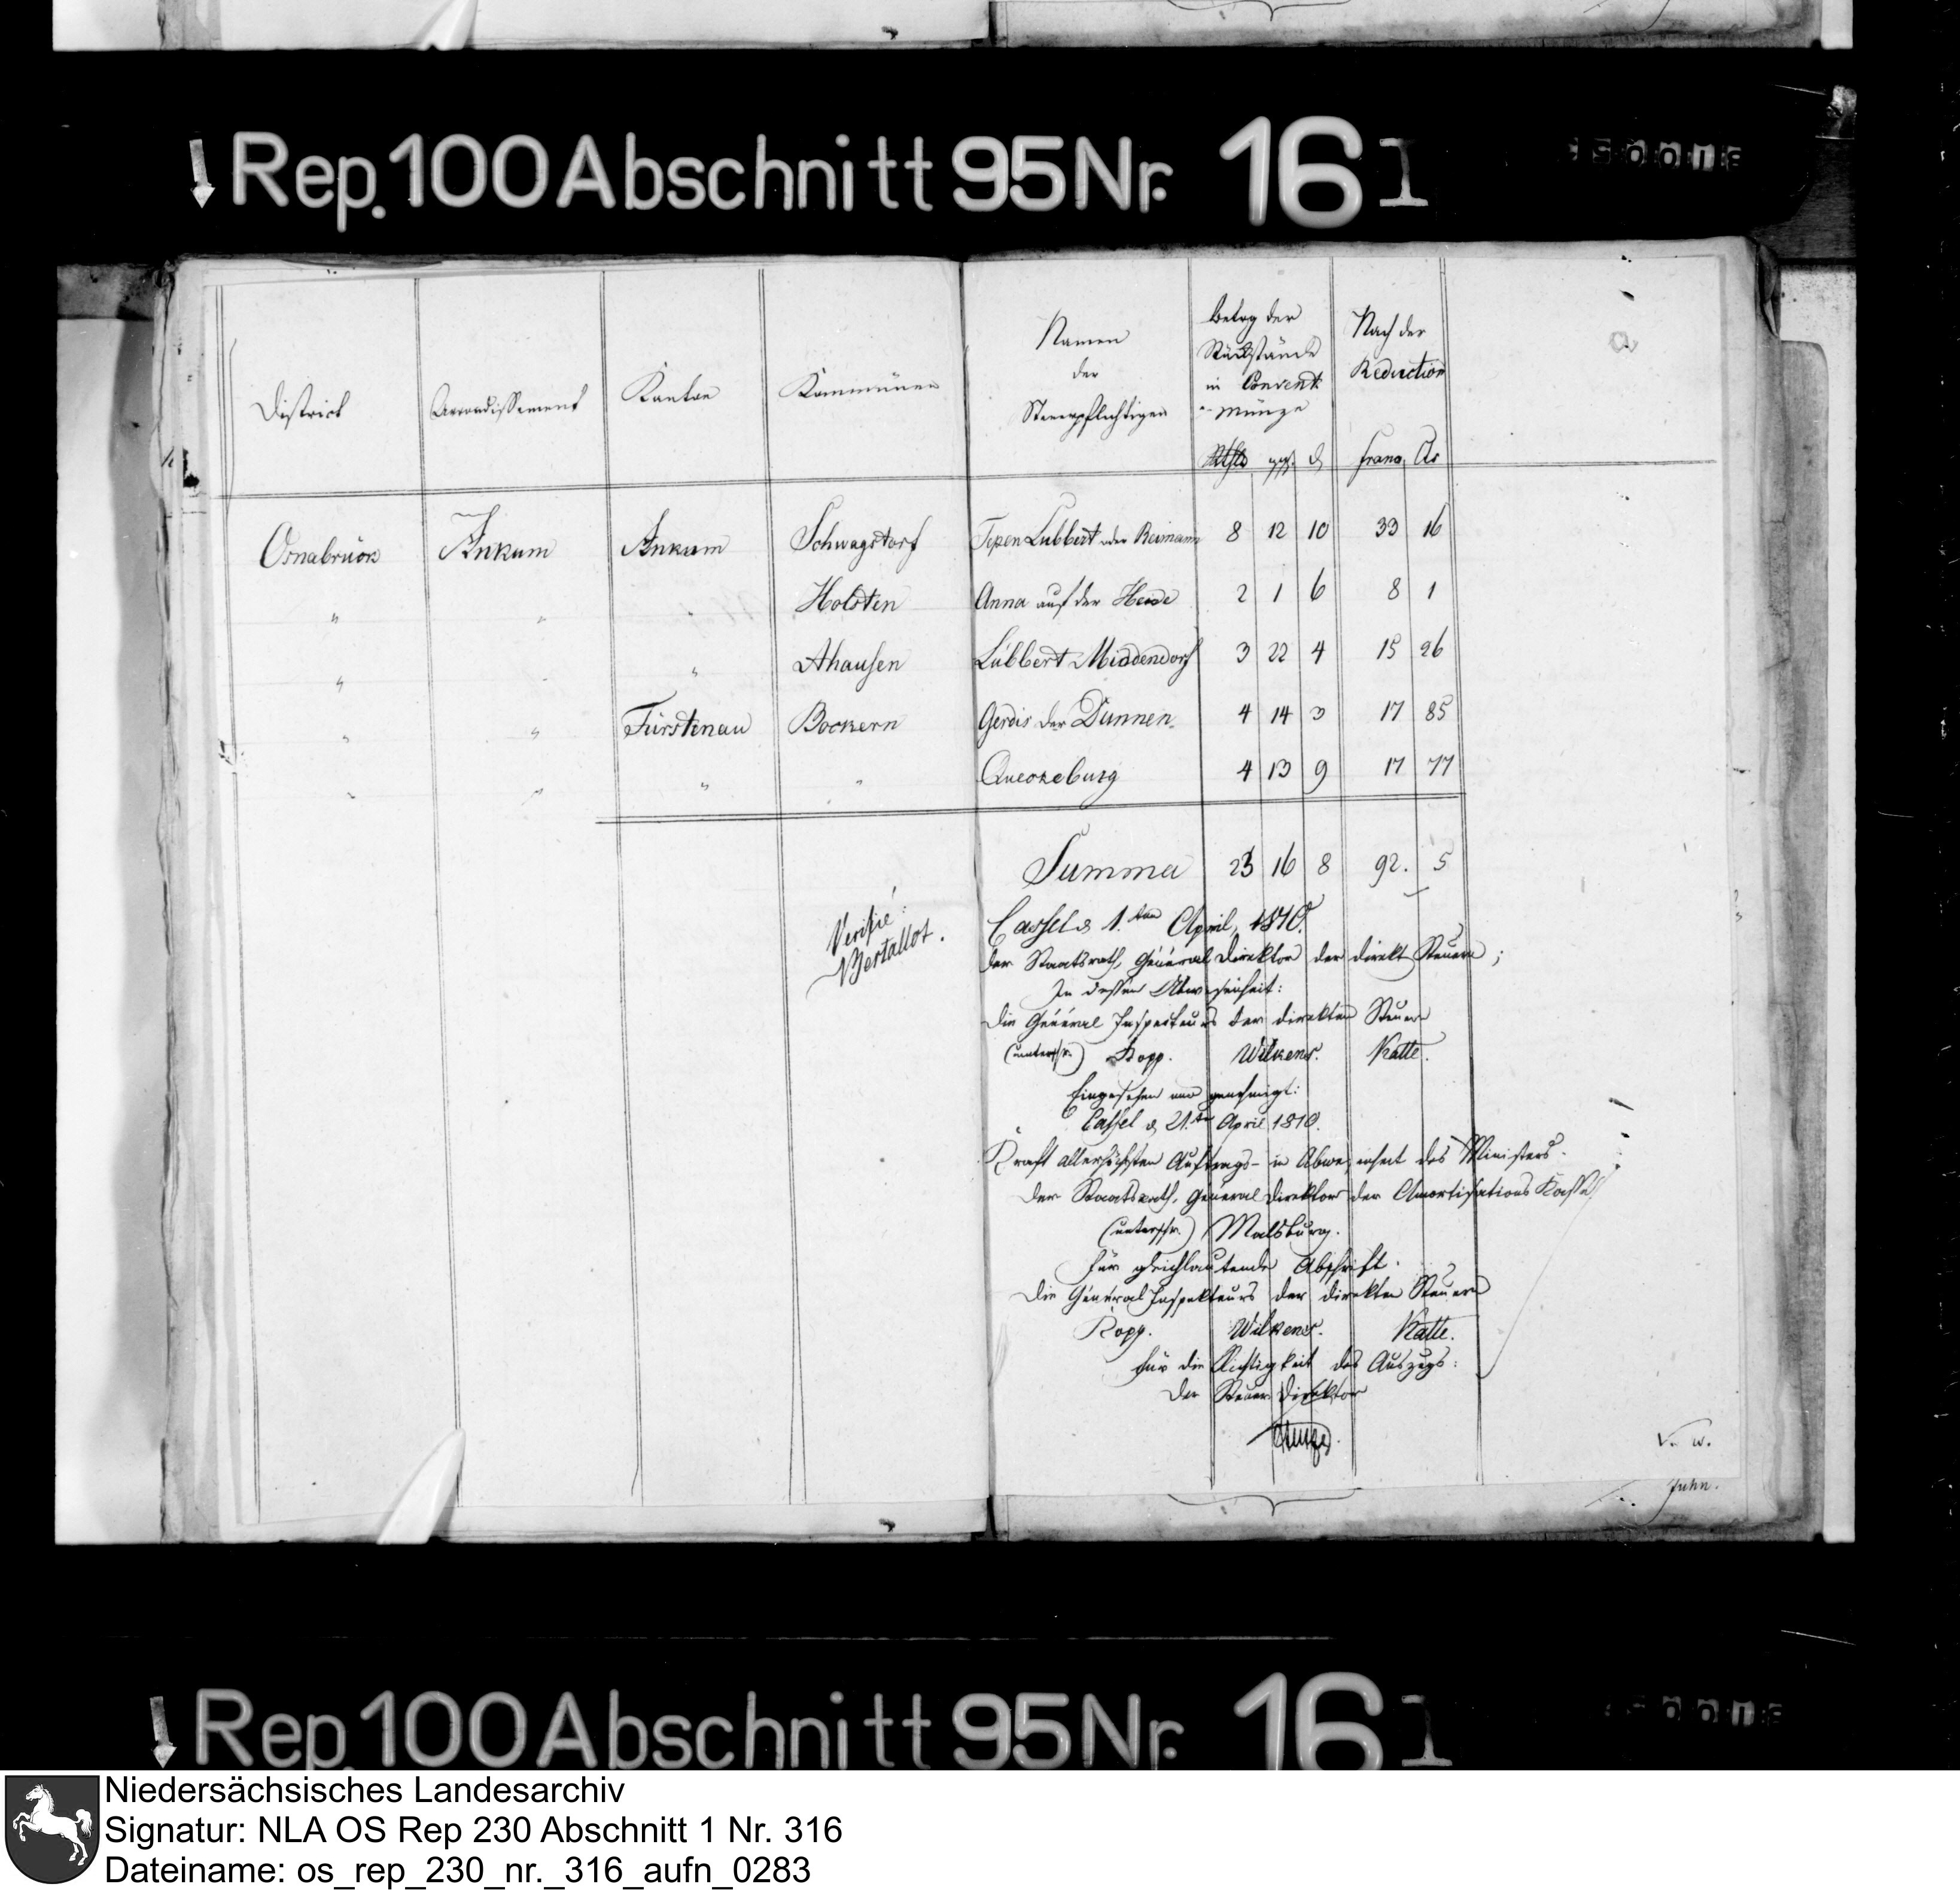 Rep. 100 Abschnitt 95 Nr. 16 I
District Arrondissement Kanton Kommünen Namen der Steuerpflichtigen Betrag der Rückstände in Convent. Münze Nach der Reduction
Rthlr ggr. d franc, Cs
Osnabrück Ankum Ankum Schwagstorf Tepen Lübbert oder Reimann 8 12 10 33 16
" " " Holsten Anna auf der Heide 2 1 6 8 1
" " " Ahausen Lübbert Middendorf 3 22 4 15 26
" " Fürstenau Bockern Gerdis der Dünnen 4 14 3 17 85
" " " " Queckeburg 4 13 9 17 77
Summa 23 16 8 92. 5
Verifié:
Bertallot.
Cassel d. 1.ten April, 1810.
der Staatsrath, Général Direktor der direkt Steuern;
In dessen Abwesenheit:
die Général Inspecteurs der direkten Steuern
(unterschr.) Kopp. Wilkens. Katte.
Eingesehen und genehmigt:
Cassel d. 21.ten April 1810.
Kraft allerhöchsten Auftrags- in Abwesenheit des Ministers.
der Staatsrath, General Direktor der Amortisations Kasse
(unterschr.) Malsburg.
für gleichlautende Abschrift.
die Général Inspekteurs der direkten Steuern
Kopp. Wilkens. Katte.
für die Richtigkeit des Auszugs:
der Steuer Direktor
V. w.
Rep. 100 Abschnitt 95 Nr. 16 I
Niedersächsisches Landesarchiv
Signatur: NLA OS Rep 230 Abschnitt 1 Nr. 316
Dateiname: os_rep_230_nr._316_aufn_0283